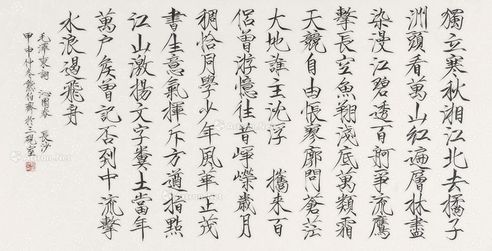 獨立寒秋湘江北去橘子
洲頭看萬山紅遍層林盡
染漫江碧透百舸爭流鷹
擊長空魚翔淺底萬類霜
天競自由悵寥廓問蒼茫
大地誰主沈浮 攜來百
侶曾游憶往昔崢嶸歲月
稠恰同學少年風華正茂
書生意氣揮斥方遒指點
江山激揚文字糞土當年
萬户侯曾記否到中流擊
水浪遏飛舟
毛澤東詞 沁園春 長沙
甲申仲冬